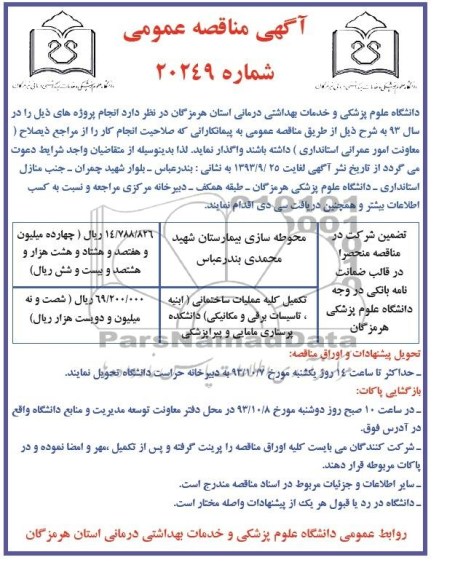 آگهی مناقصه عمومی
شماره ۲۰۲۴۹
دانشگاه علوم پزشکی و خدمات بهداشتی درمانی استان هرمزگان در نظر دارد انجام پروژه های ذیل را در
سال ۹۳ به شرح ذیل از طریق مناقصه عمومی به پیمانکارانی که صلاحیت انجام کار را از مراجع ذیصلاح (
معاونت امور عمرانی استانداری ) داشته باشند واگذار نماید. لذا بدینوسیله از متقاضیان واجد شرایط دعوت
می گردد از تاریخ نشر آگهی لغایت ۱۳۹۳/۹/۲۵ به نشانی : بندرعباس – بلوار شهید چمران – جنب منازل
استانداری – دانشگاه علوم پزشکی هرمزگان – طبقه همکف – دبیرخانه مرکزی مراجعه و نسبت به کسب
اطلاعات بیشتر و همچنین دریافت سی دی اقدام نمایند.
تضمین شرکت در
مناقصه منحصرا
در قالب ضمانت
نامه بانکی در وجه
دانشگاه علوم پزشکی
هرمزگان
محوطه سازی بیمارستان شهید
محمدی بندرعباس
۱۴/۷۸۸/۸۲۶ ریال ( چهارده میلیون
و هفتصد و هشتاد و هشت هزار و
هشتصد و بیست و شش ریال)
تکمیل کلیه عملیات ساختمانی ( ابنیه
، تاسیسات برقی و مکانیکی) دانشکده
پرستاری مامایی و پیراپزشکی
۶۹/۲۰۰/۰۰۰ ریال ( شصت و نه
میلیون و دویست هزار ریال)
ParsNamadData
تحویل پیشنهادات و اوراق مناقصه:
ـ حداکثر تا ساعت ۱۴ روز یکشنبه مورخ ۹۳/۱۰/۷ به دبیرخانه حراست دانشگاه تحویل نمایند.
بازگشایی پاکات:
ـ در ساعت ۱۰ صبح روز دوشنبه مورخ ۹۳/۱۰/۸ در محل دفتر معاونت توسعه مدیریت و منابع دانشگاه واقع
در آدرس فوق.
ـ شرکت کنندگان می بایست کلیه اوراق مناقصه را پرینت گرفته و پس از تکمیل ،مهر و امضا نموده و در
پاکات مربوطه قرار دهند.
ـ سایر اطلاعات و جزئیات مربوط در اسناد مناقصه مندرج است.
ـ دانشگاه در رد یا قبول هر یک از پیشنهادات واصله مختار است.
روابط عمومی دانشگاه علوم پزشکی و خدمات بهداشتی درمانی استان هرمزگان